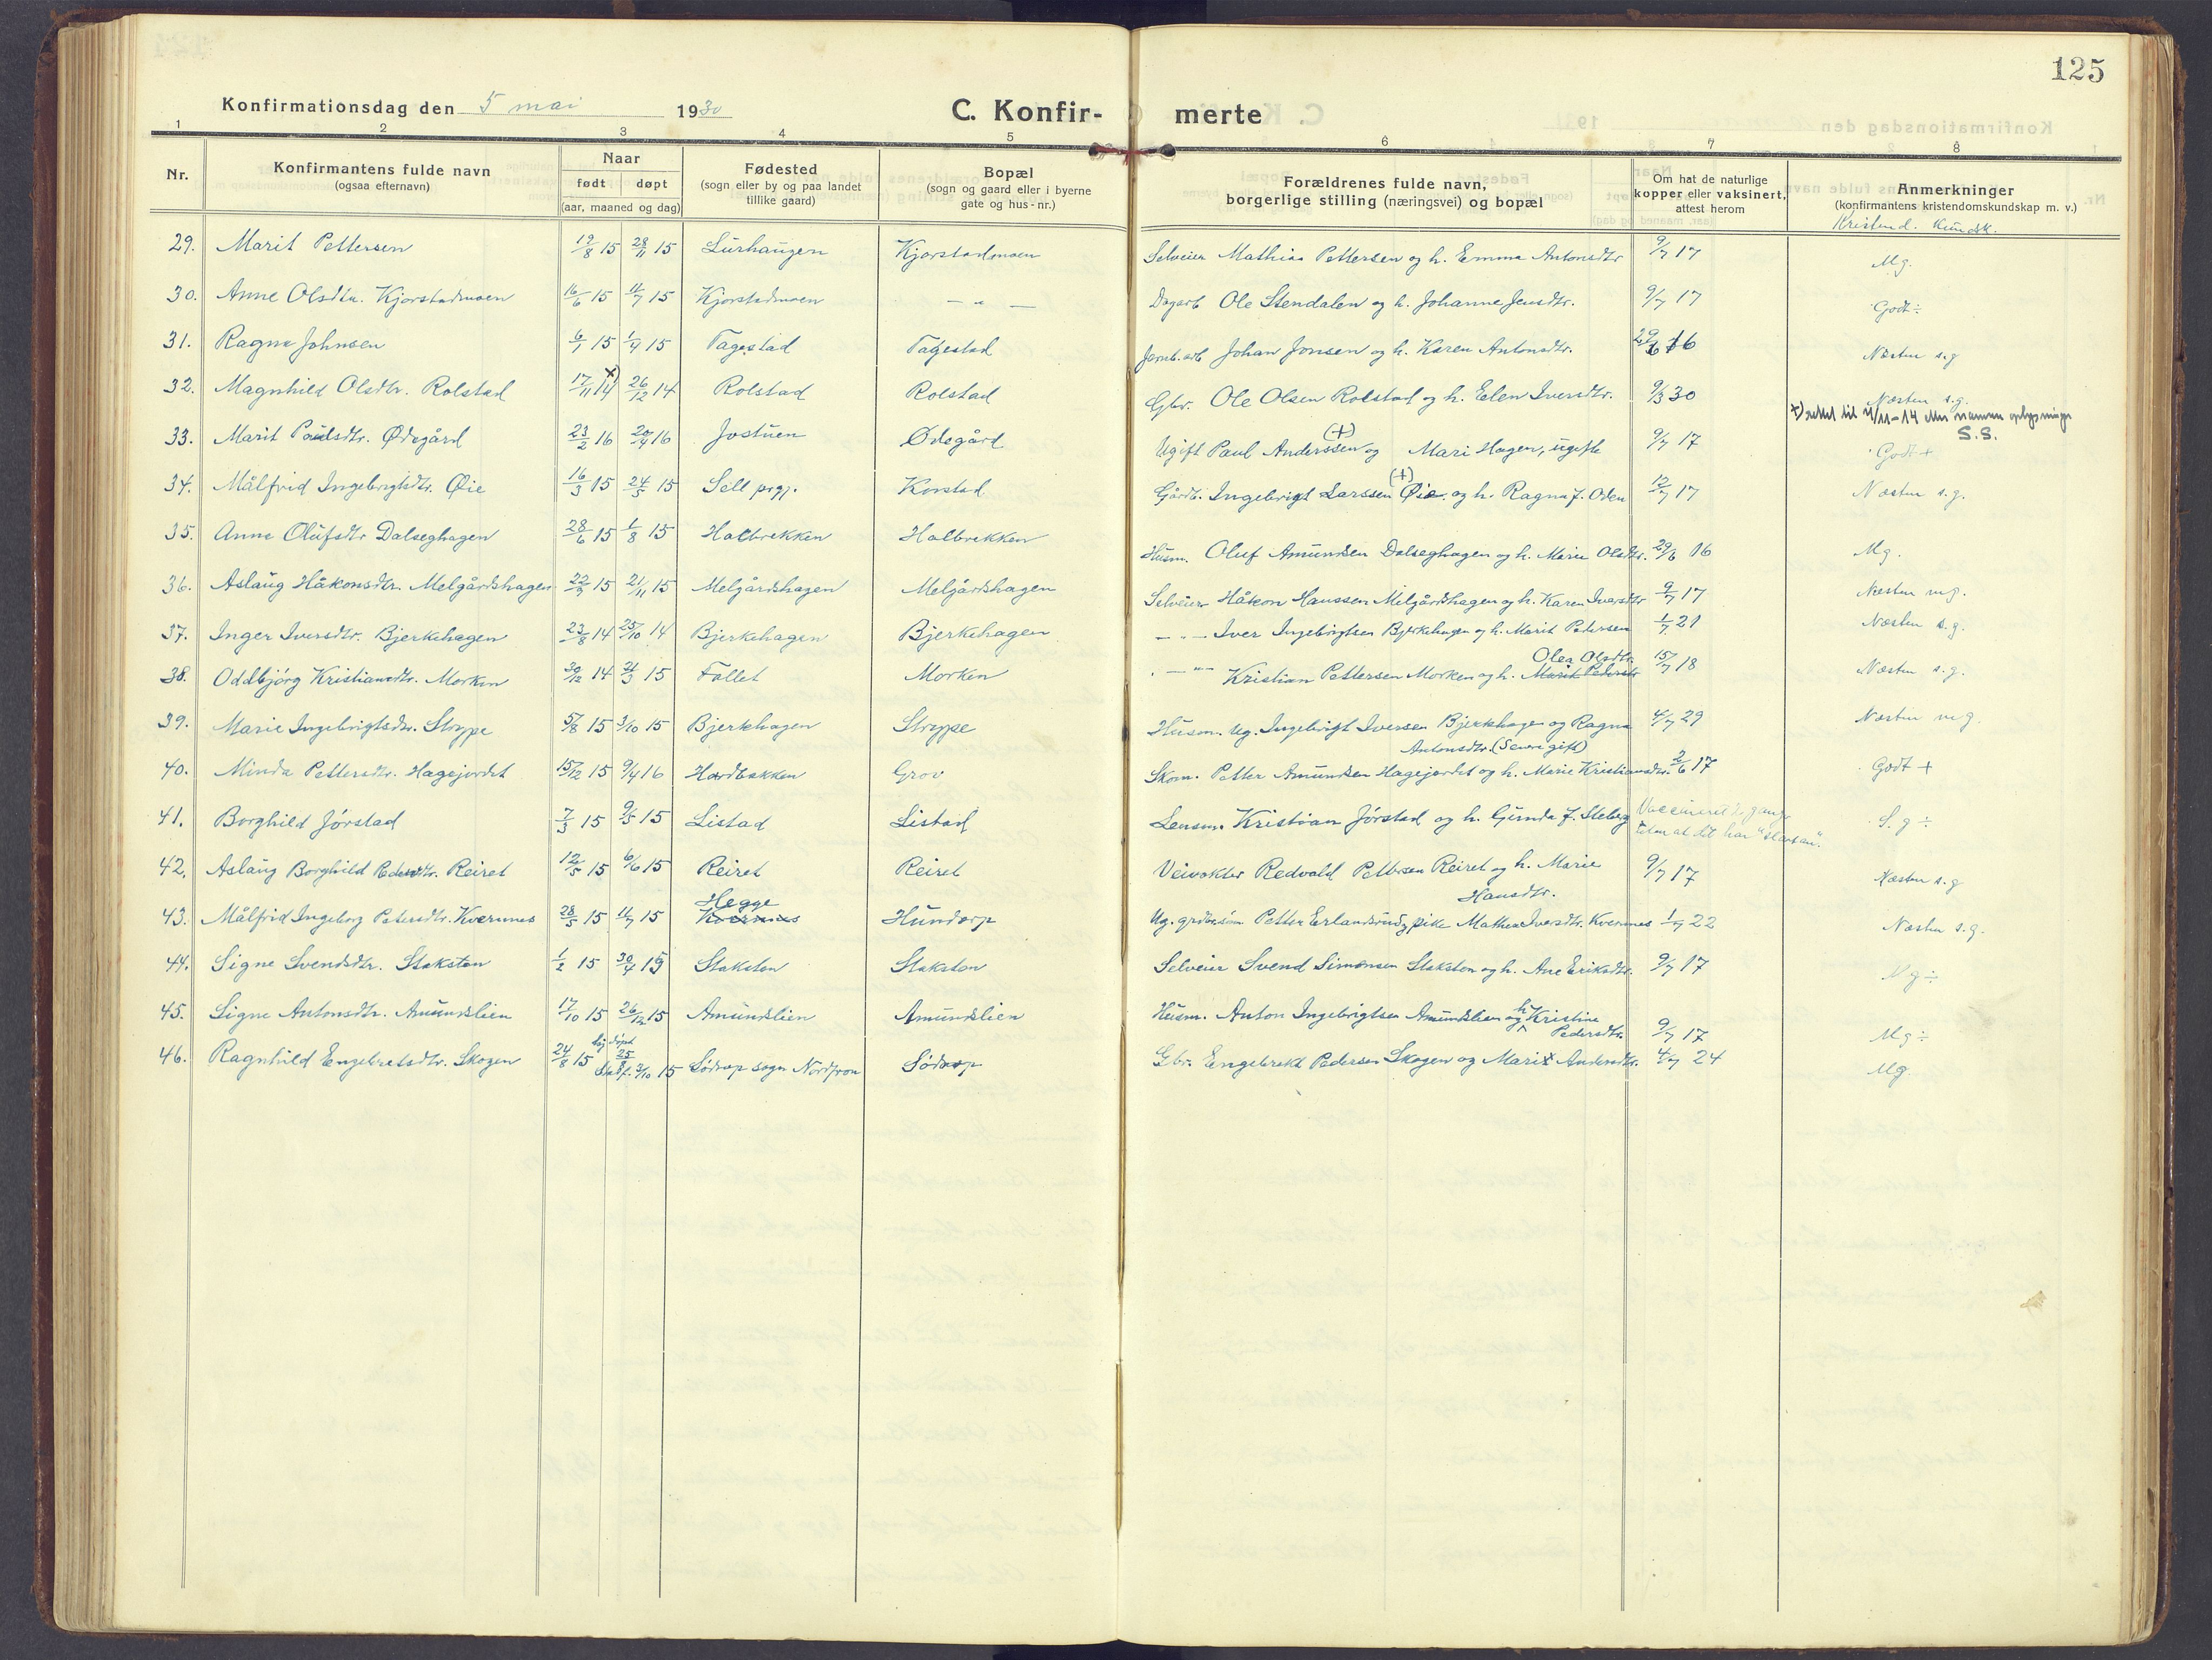 125
Konfirmationsdag den 5 mai 1930
C. Konfir- merte
1 2 3 4 5 6 7 8
Nr.
Konfirmantens fulde navn
(ogsaa efternavn)
Naar
født døpt
(aar, maaned og dag)
Fødested
(sogn eller by og paa landet
tillike gaard)
Bopæl
(sogn og gaard eller i byerne
gate og hus-nr.)
Forældrenes fulde navn,
borgerlige stilling (næringsvei) og bopæl
Om hat de naturlige
kopper eller vaksinert,
attest herom
Anmerkninger
(konfirmantens kristendomskundskap m. v.)
Kristend. Kundsk.
29. Marit Pettersen 19/8 15 28/11 15 Lurhaugen Kjorstadmoen Selveier Mathias Pettersen og h. Emma Antonsdtr 9/7 17 Mg.
30. Anne Olsdtr. Kjorstadmoen 16/6 15 11/7 15 Kjorstadmoen — " — Dagarb Ole Stendalen og h. Johanne Jensdtr. 9/7 17 Godt ÷
31. Ragna Johnsen 6/1 15 1/4 15 Tagestad Tagestad Jernb. arb Johan Jonsen og h. Karen Antonsdtr. 29/6 16 Næsten s.g
32. Magnhild Olsdtr. Rolstad 17/11 14 x) 26/12 14 Rolstad Rolstad Gbr. Ole Olsen Rolstad og h. Elen Iversdtr. 9/3 30 Næsten s.g.
x) rettet til 4/11-14 etter namen oplysninge
S.S.
33. Marit Paulsdtr. Ødegård 23/2 16 20/4 16 Jostuen Ødegård Ugift Paul Anderssen (+) og Mari Hagen, ugifte 9/7 17 Godt +
34. Målfrid Ingebrigtsdtr. Øie 16/3 15 24/5 15 Sell prgj. Korstad Gårdb. Ingebrigt Larssen Øie (+) og h. Ragna f. Oden 12/7 17 Næsten s.g.
35. Anne Olufsdtr Dalseghagen 28/6 15 1/8 15 Halbrekken Halbrekken Husm. Oluf Amundsen Dalseghagen og h. Marie Olsdtr. 29/6 16 Mg.
36. Aslaug Håkonsdtr. Melgårdshagen 22/9 15 21/11 15 Melgårdshagen Melgårdshagen Selveier Håkon Hanssen Melgårdshagen og h. Karen Iversdtr 9/7 17 Næsten mg.
37. Inger Iversdtr. Bjerkehagen 23/8 14 25/10 14 Bjerkehagen Bjerkehagen — " — Iver Ingebrigtsen Bjerkehagen og h. Marit Petersen 1/7 21 Næsten s.g.
38. Oddbjörg Kristiansdtr. Morken 30/12 14 21/3 15 Fallet Morken — " — Kristian Pettersen Morken og h. Marit Petersdtr Olea Olsdtr. 15/7 18 Næsten s.g.
39. Marie Ingebrigtsdtr. Stryppe 5/8 15 3/10 15 Bjerkhagen Stryppe Husm. ug. Ingebrigt Iversen Bjerkhagen og Ragna 4/7 29 Næsten mg.
Antonsdtr. (Senere gift)
40. Minda Pettersdtr. Hagejordet 15/12 15 9/4 16 Hardbakken Grov Skom. Petter Amundsen Hagejordet og h. Marie Kristiansdtr. 2/6 17 Godt +
41. Borghild Jörstad 7/3 15 9/5 15 Listad Listad Lensm. Kristian Jörstad og h. Gunda f. Steberg Vaccineret 2 gange
uten at det har "slaat an". S.g ÷
42. Aslaug Borghild Pedersdtr. Reiret 12/5 15 6/6 15 Reiret Reiret Veivokter Redvald Pettersen Reiret og h. Marie 9/7 17 Næsten s.g
Hansdtr.
43. Målfrid Ingeborg Petersdtr. Kvernnes 28/5 15 11/7 15 Hegge Kvernnes Hundorp Ug. grdbr.søn Petter Erlandsrud og pike Mathea Iversdtr. Kvernnes 1/7 22 Næsten s.g.
44. Signe Svendsdtr. Stakston 1/2 15 30/4 15 Stakston Stakston Selveier Svend Simensen Stakston og h. Ane Eriksdtr. 9/7 17 Mg ÷
45. Signe Antonsdtr. Amundslien 17/10 15 26/12 15 Amundslien Amundslien Husm. Anton Ingebrigtsen Amundslien og h. Kristine
Pedersdtr. 9/7 17 Mg ÷
46. Ragnhild Engebretsdtr. Skogen 24/8 15 hj. døpt 25/8 Stadf. 3/10 15 Sødorp sogn Nordfron Sødorp Gbr. Engebrekt Pedersen Skogen og Marit Andersdtr. 4/7 24 Mg.